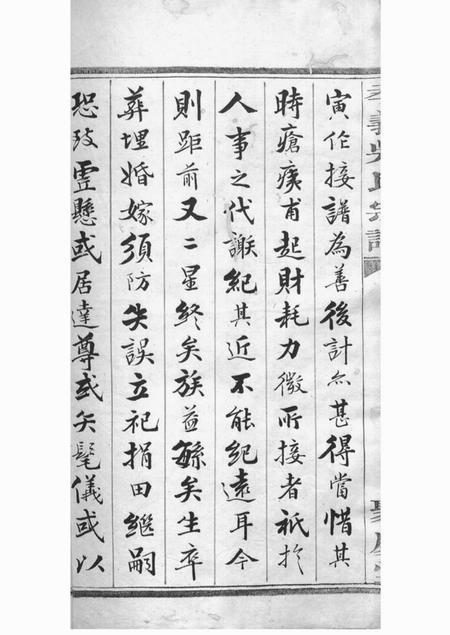 孝義吳氏宗譜
寅作接譜為善後計亦甚得當惜其
時瘡痍甫起財耗力微所接者祇於
人事之代謝紀其近不能紀遠耳今
則距前又二星終矣族益緐矣生卒
葬埋婚嫁須防失誤立祀捐田繼嗣
恐致虛懸或居達尊或矢髦儀或以